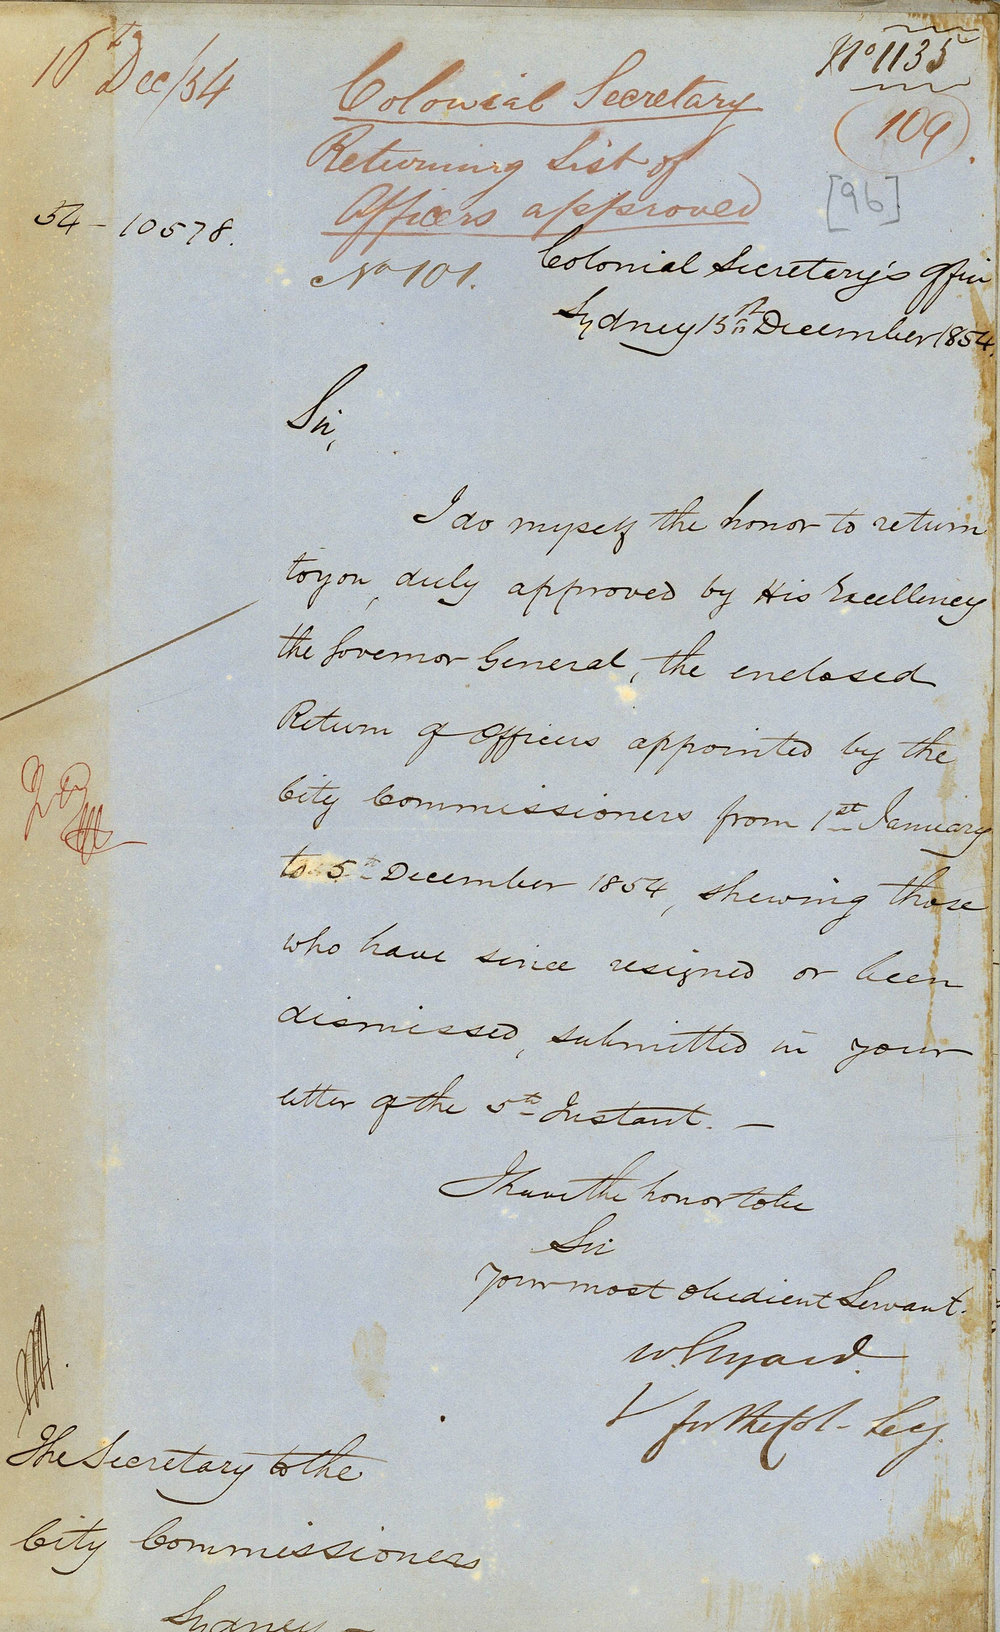 16th Dec/54
No 1135
109
[96]
Colonial Secretary
Returning List of
Officers approved
No 101.
54-10578.
Colonial Secretary's Office
Sydney 15th December 1854.
Sir,
I do myself the honor to return
to you, duly approved by His Excellency
the Governor General, the enclosed
Return of Officers appointed by the
City Commissioners from 1st January
to 5th December 1854, shewing those
who have since resigned or been
dismissed, submitted in your
letter of the 5th Instant. —
I have the honor to be
Sir
Your most obedient Servant.
W. Elyard
for the Col- Secy.
The Secretary to the
City Commissioners
Sydney —